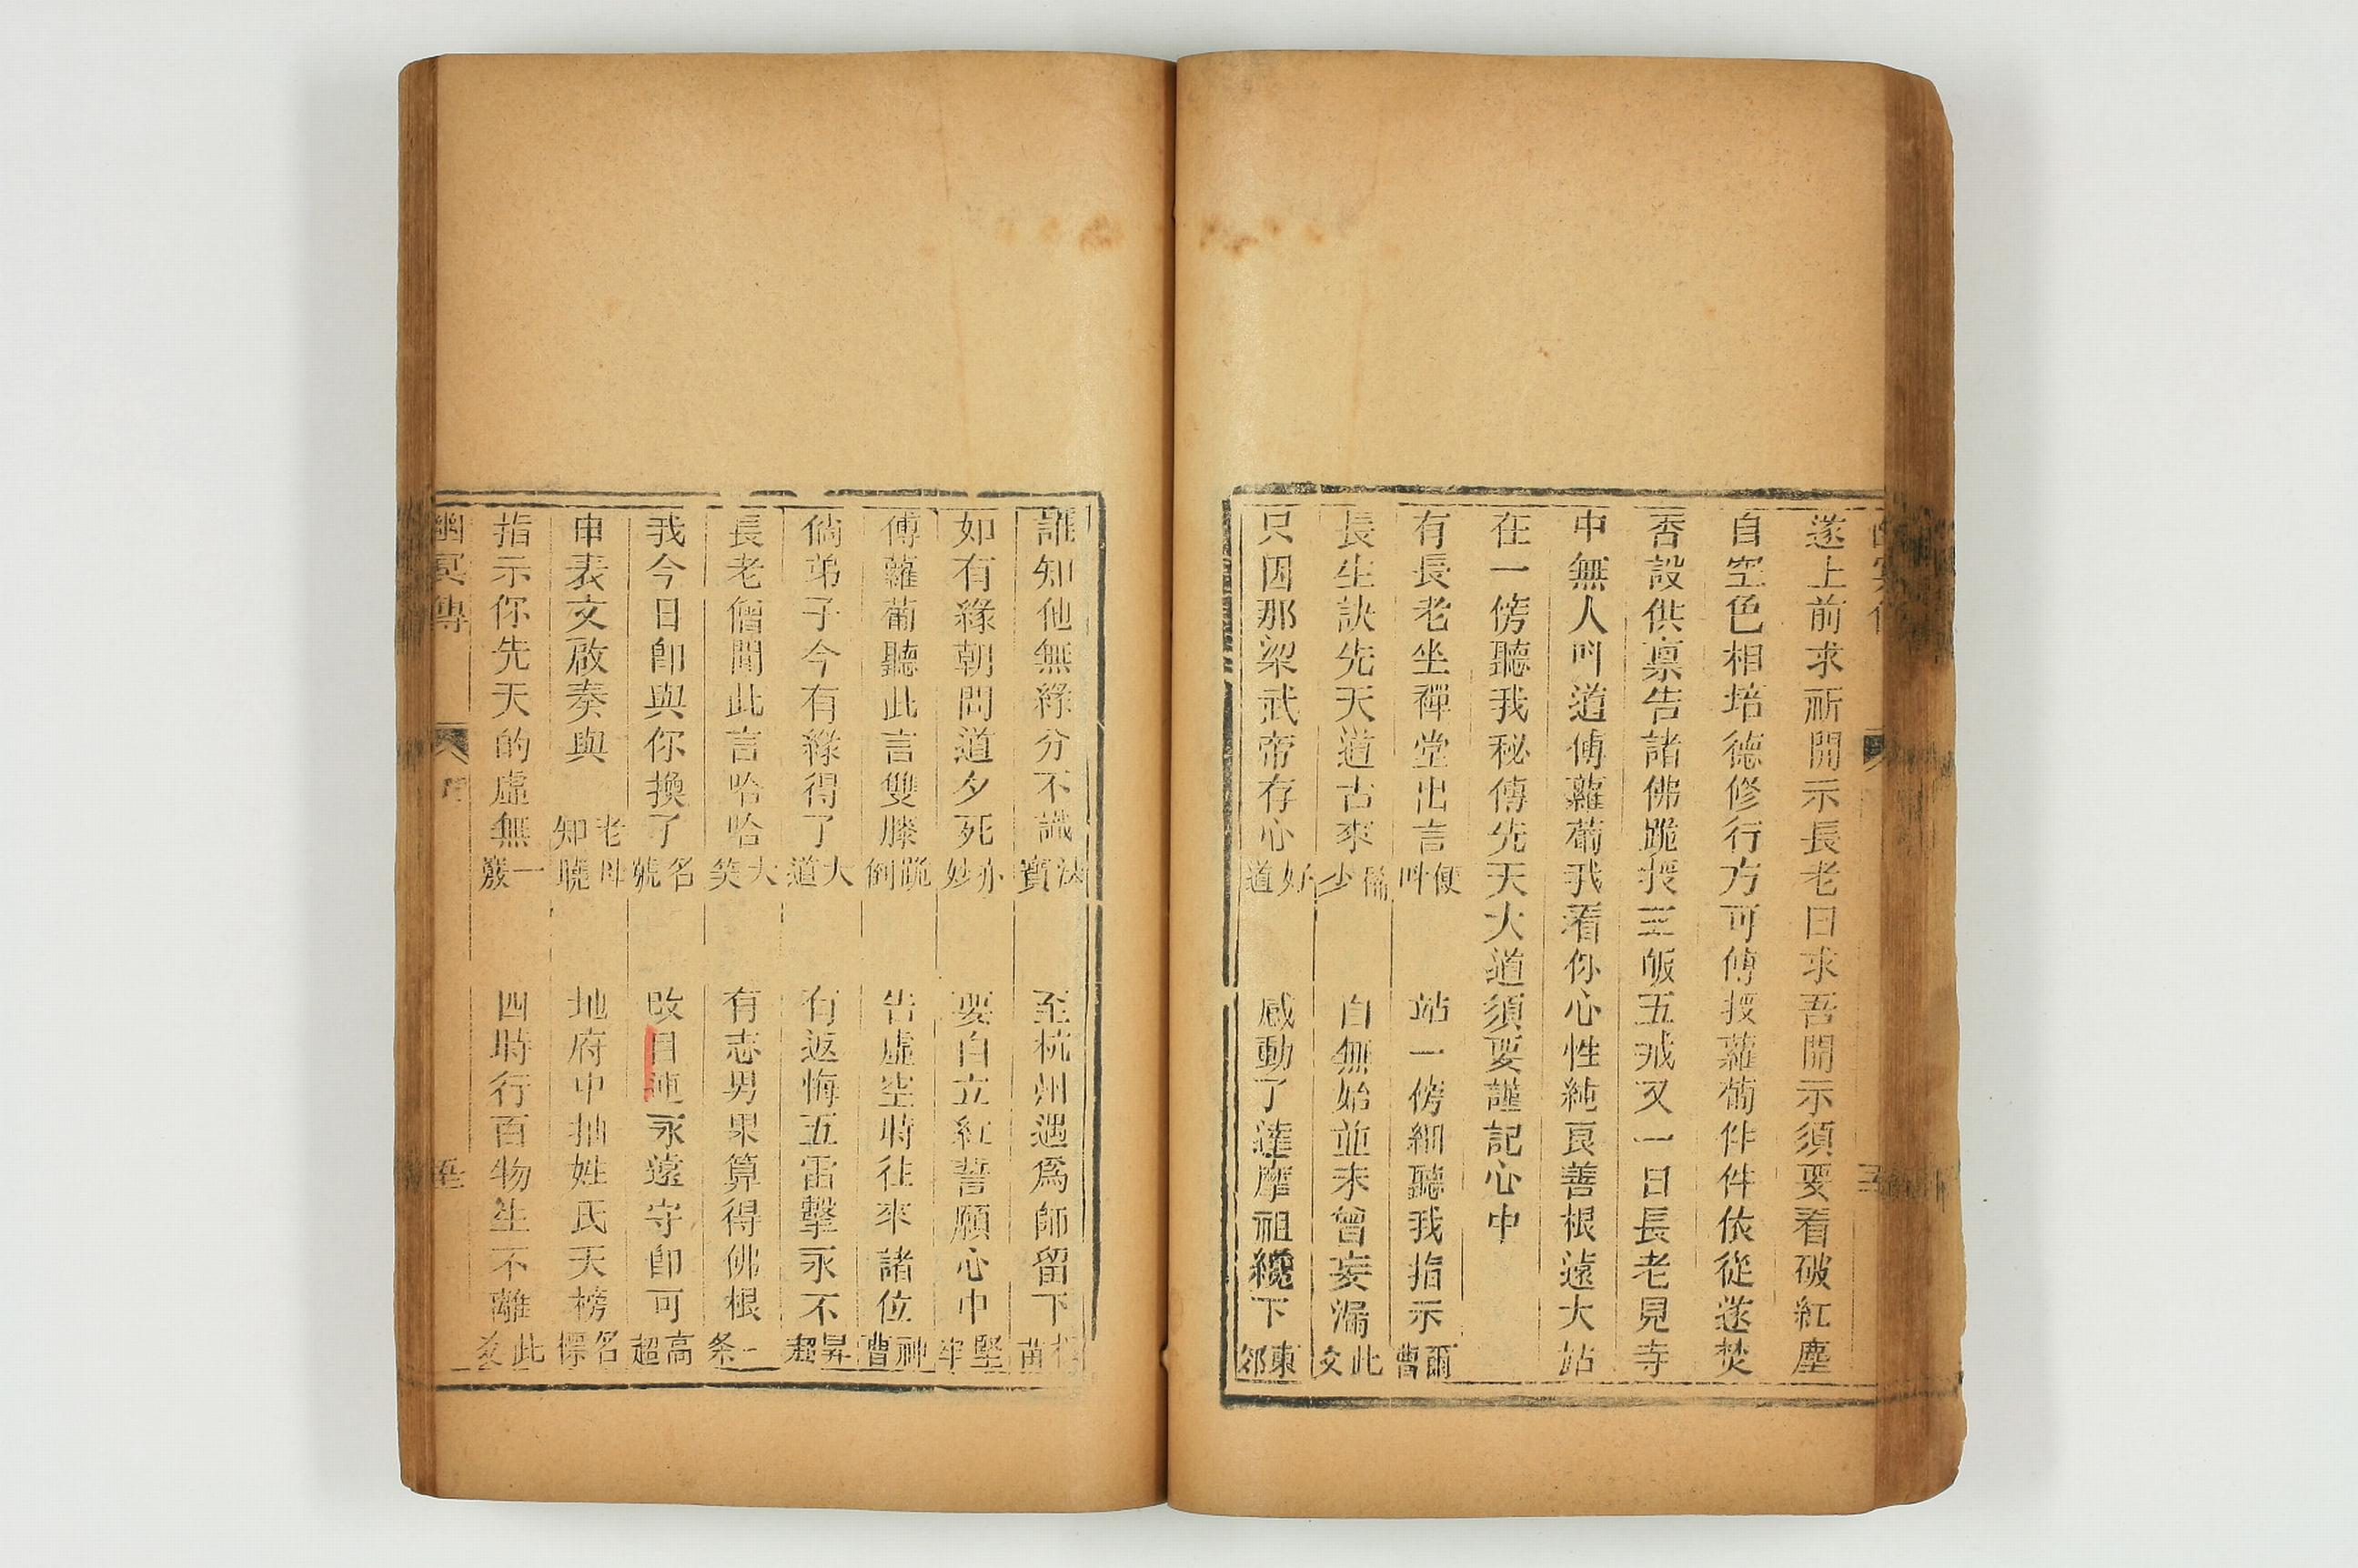 遂上前求祈開示長老曰求吾開示須要看破紅塵
自空色相培德修行方可傳授蘿葡件件依從遂焚
香設供禀告諸佛跪授三皈五戒又一日長老見寺
中無人呌道傅蘿葡我看你心性純良善根遠大站
在一傍聽我秘傳先天大道須要謹記心中
有長老坐禪堂出言便呌 站一傍細聽我指示爾曹
長生訣先天道古來稀少 自無始並未曾妄漏此文
只因那梁武帝存心好道 感動了達摩祖纔下東郊
誰知他無緣分不識法寶 至杭州遇爲師留下根苗
如有緣朝問道夕死亦妙 要自立紅誓願心中堅牢
傅蘿葡聽此言雙膝跪倒 告虛空時往來諸位神曹
倘弟子今有緣得了大道 有返悔五雷擊永不昇超
長老僧聞此言哈哈大笑 有志男果算得佛根一条
我今日卽與你換了名號 改目連永遠守卽可高超
申表文啟奏與老母知曉 地府中抽姓氏天榜名標
指示你先天的虛無一竅 四時行百物生不離此爻
幽冥傳